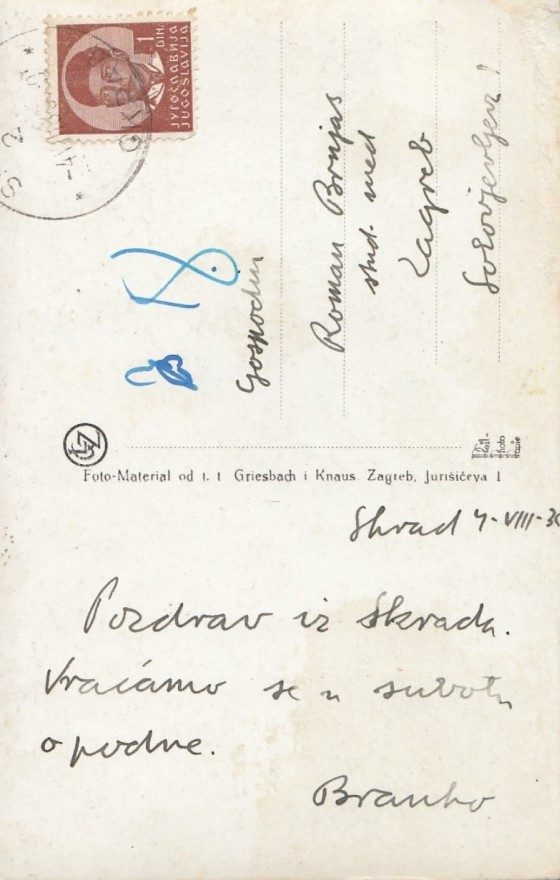 1
DIN.
ЈУГОСЛАВИЈА
JUGOSLAVIJA
Gospodin
Roman Brnjas
stud. med
Zagreb
Foto-Material od t. t Griesbach i Knaus Zagreb, Jurišićeva 1
Skrad 4-VIII-36
Pozdrav iz Skrada.
Vraćamo se u subotu
o podne.
Branko